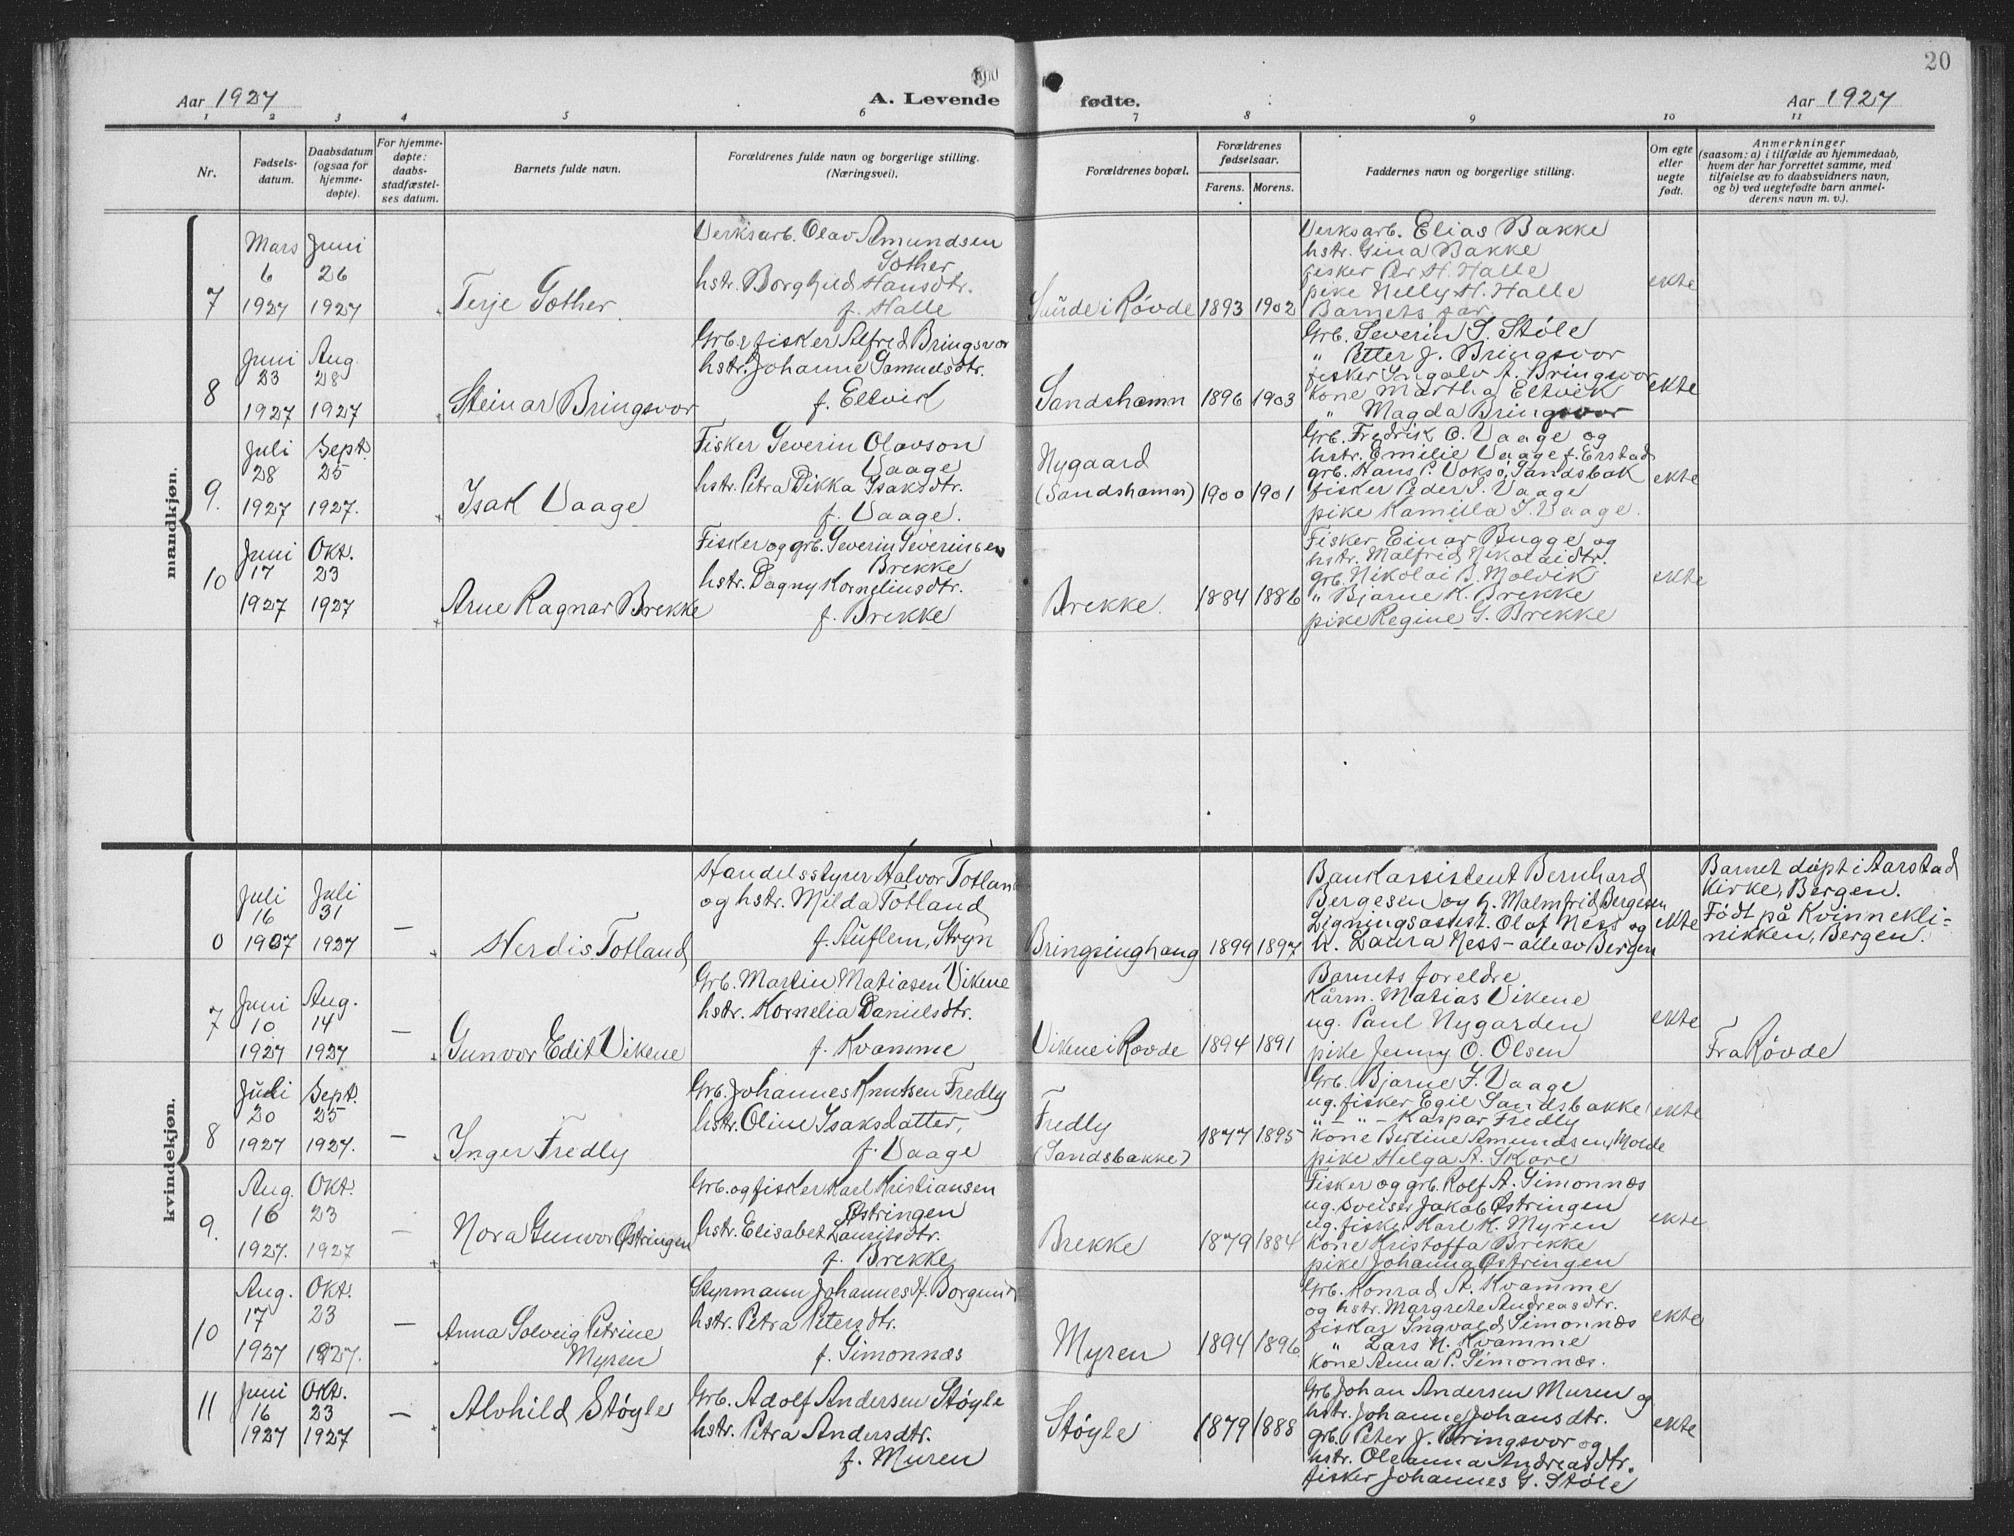 20
Aar 1927
A. Levende
fødte.
Aar 1927
1 2 3 4 5 6 7 8 9 10 11
Nr.
Fødsels-
datum.
Daabsdatum
(ogsaa for
hjemme-
døpte).
For hjemme-
døpte:
daabs-
stadfæstel-
ses datum.
Barnets fulde navn.
Forældrenes fulde navn og borgerlige stilling.
(Næringsvei).
Forældrenes bopæl.
Forældrenes
fødselsaar.
Farens. Morens.
Faddernes navn og borgerlige stilling.
Om egte
eller
uegte
født.
Anmerkninger
(saasom: a) i tilfælde av hjemmedaab,
hvem der har forrettet samme, med
tilføielse av to daabsvidners navn,
og b) ved uegtefødte barn anmel-
derens navn m. v.).
mandkjøn.
7
Mars
6
1927
Juni
26
1927
Terje Gother
Verksarb. Olav Amundsen
Gother
hstr. Borghild Hansdtr.
f. Halle
Saude i Røvde
1893 1902
Verksarb. Elias Bakke
hstr. Gina Bakke
fisker Per H. Halle
pike Nelly H. Halle
Barnets far.
ekte
8
Juni
23
1927
Aug.
28
1927
Steinar Bringsvor
Grb. & fisker Alfred Bringsvor
hstr. Johanne Samuelsdtr.
f. Eltvik
Sandshamn
1896 1903
Grb. Severin S. Støle
" Petter J. Bringsvor
fisker Ingolv A. Bringsvor
Kone Martha Eltvik
" Magda Bringsvor
ekte
9.
Juli
28
1927
Sept.
25
1927.
Isak Vaage
Fisker Severin Olavson
Vaage
hstr. Petra Dikka Isaksdtr.
f. Vaage.
Nygaard
(Sandshamn)
1900 1901
Grb. Fredrik O. Vaage og
hstr. Emilie Vaage f. Erstad
grb. Hans P. Voksø, Sandsbak
fisker Peder S. Vaage
pike Kamilla I. Vaage.
ekte
10
Juni
17
1927
Okt.
23
1927
Arne Ragnar Brekke
Fisker og grb. Severin Severinsen
Brekke
hstr. Dagny Korneliusdtr.
f. Brekke
Brekke.
1884 1886
Fisker Einar Bugge og
hstr. Malfrid Nikolaidtr.
grb. Nikolai B. Molvik
" Bjarne K. Brekke
pike Regine G. Brekke
ekte
kvindekjøn.
0
Juli
16
1927
Juli
31
1927
—
Herdis Totland
Handelsstyrer Halvor Totland
og hstr. Milda Totland
f. Auflem, Stryn
Bringsinghaug
1899 1897
Bankassistent Bernhard
Bergesen og h. Malmfrid Bergesen
Ligningsassist. Olaf Ness og
h. Laura Ness - alle av Bergen
ekte
Barnet døpt i Aarstad
Kirke, Bergen.
Født på Kvinnekli-
nikken, Bergen.
7
Juni
10
1927
Aug.
14
1927
—
Gunvor Edit Vikene
Grb. Martin Matiasen Vikene
hstr. Kornelia Danielsdtr.
f. Kvamme
Vikene i Røvde
1894 1891
Barnets foreldre
Kårm. Matias Vikene
ug. Paul Nygarden
pike Jenny O. Olsen
ekte
Fra Røvde
8
Juli
20
1927
Sept.
25
1927.
—
Inger Fredly
Grb. Johannes Knutsen Fredly
hstr. Oline Isaksdatter,
f. Vaage
Fredly
(Sandsbakke)
1877 1895
Grb. Bjarne I. Vaage
ug. fisker Egil Sandsbakke
" - " - Kaspar Fredly
Kone Bertine Amundsen, Molde
pike Helga A. Skare
ekte
9.
Aug.
16
1927.
Okt.
23
1927
—
Nora Gunvor Østringen
Grb. og fisker Karl Kristiansen
Østringen
hstr. Elisabet Lauritsdtr.
f. Brekke
Brekke
1879 1884
Fisker og grb. Rolf A. Simonnæs
ug. sveiser Jakob Østringen
ug. fisker Karl K. Myren
Kone Kristoffa Brekke
pike Johanna Østringen
ekte
10
Aug.
17
1927
Okt.
23
1927.
—
Anna Solveig Petrine
Myren
Styrmann Johannes K. Borgund
hstr. Petra Petersdtr.
f. Simonnæs
Myren
1894 1896
Grb. Konrad A. Kvamme
og hstr. Margrete Andreasdtr.
fisker Ingvald Simonnæs
" Lars N. Kvamme
Kone Anna P. Simonnæs.
ekte
11
Juni
16
1927
Okt.
23
1927
—
Alvhild Støyle
Grb. Adolf Andersen Støyle
hstr. Petra Andersdtr.
f. Muren
Støyle
1879 1888
Grb Johan Andersen Muren og
hstr. Johanne Johansdtr.
grb. Peter J. Bringsvor og
hstr. Oleanna Andreasdtr.
fisker Johannes G. Støle
ekte